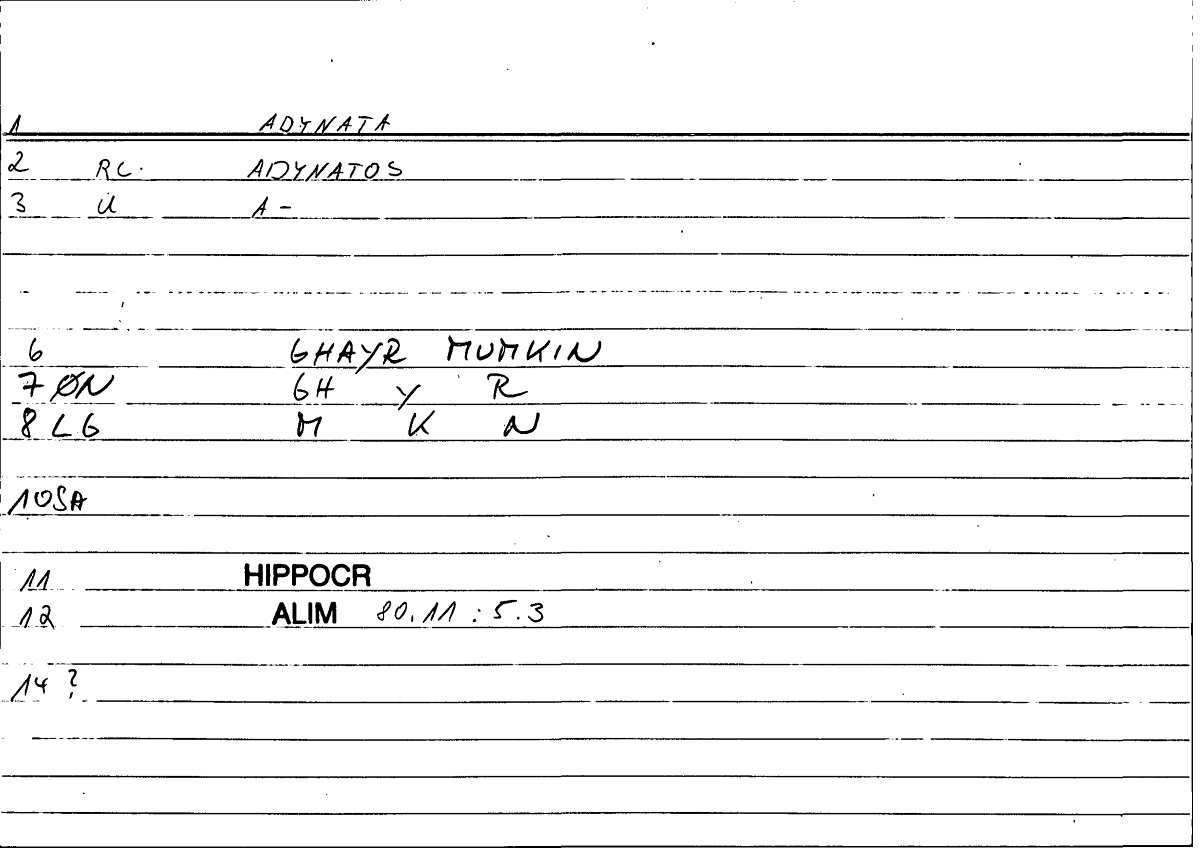 1 ADYNATA
2 RC. ADYNATOS
3 Ü A-
6 GHAYR MUMKIN
7 ØN GH Y R
8 LG M K N
10 SA
11 HIPPOCR
12 ALIM 80.11 : 5.3
14 ?